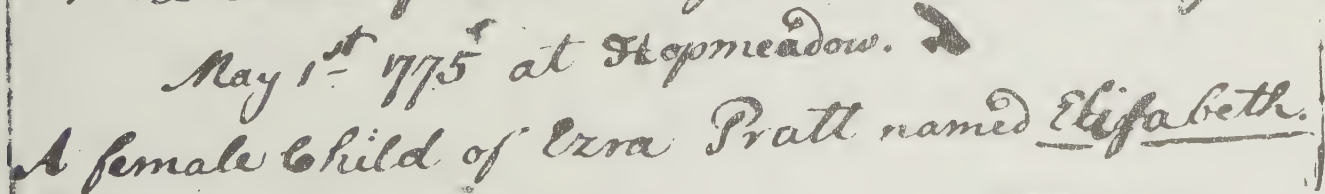 May 1st 1775 at Hopmeadow.
A female Child of Ezra Pratt named Elisabeth.